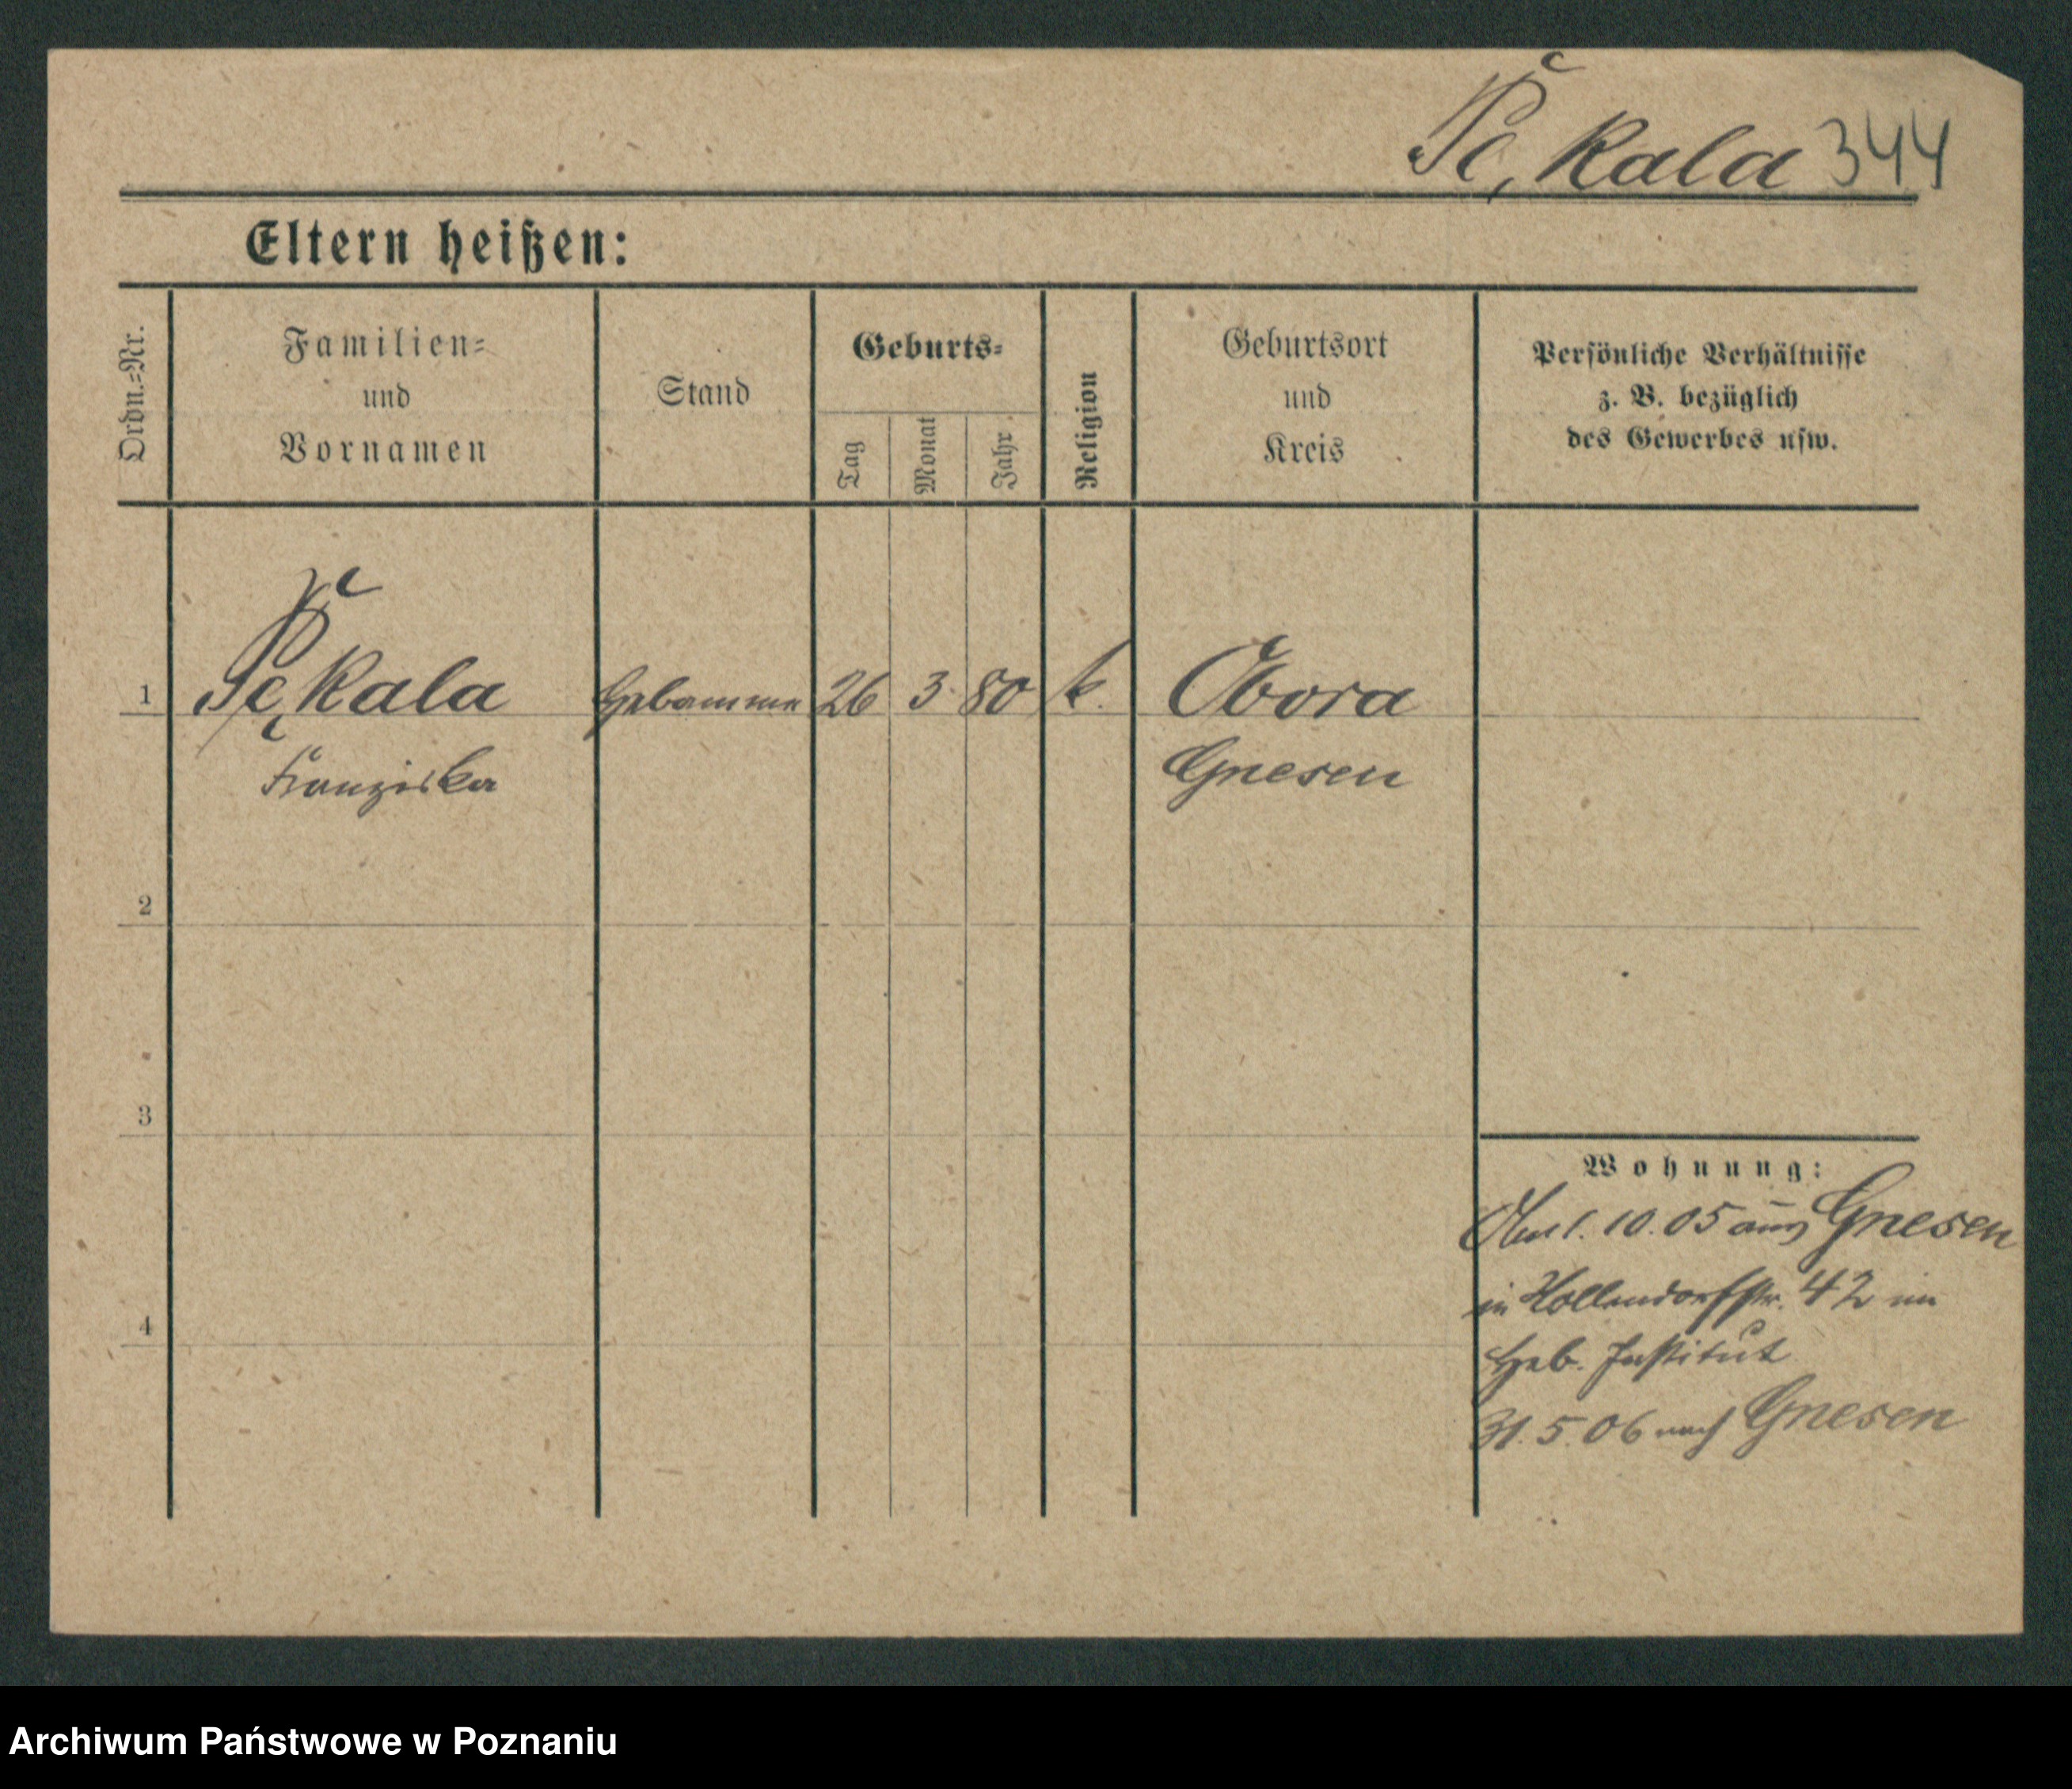 Pękala 344
Eltern heißen:
Ordn.=Nr.
Familien=
und
Vornamen
Stand
Geburts=
Tag
Monat
Jahr
Religion
Geburtsort
und
Kreis
Persönliche Verhältnisse
z. B. bezüglich
des Gewerbes usw.
1 Pękala Hebamme 26 3 80 k. Obora
Franziska Gnesen
2
3
4
Wohnung:
1. 10. 05 aus Gnesen
in Hollendorffstr. 42 im
Heb. Institut
31. 5. 06 nach Gnesen
Archiwum Państwowe w Poznaniu